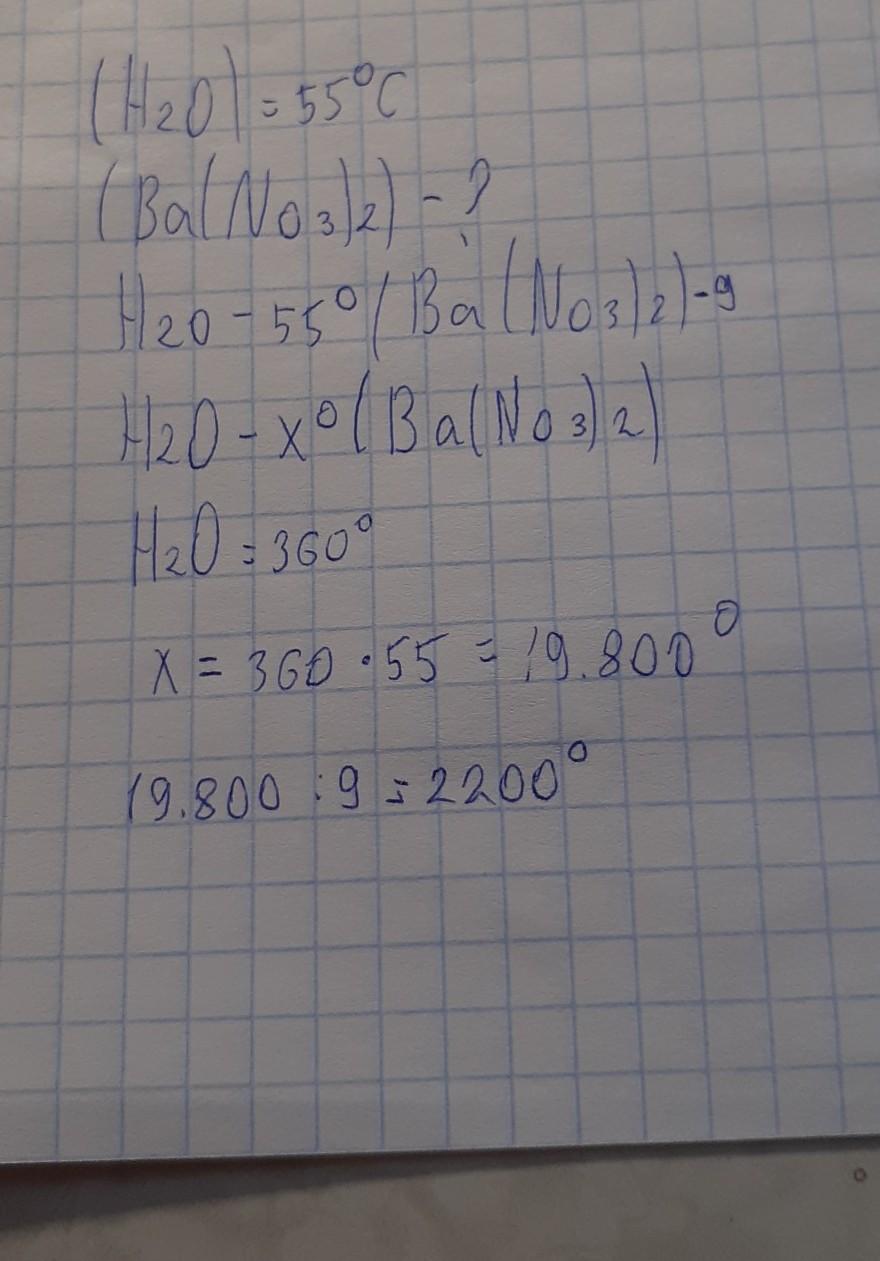 (H2O) = 55°C
(Ba(NO3)2) - ?
H2O - 55° (Ba(NO3)2) - 9
H2O - x° (Ba(NO3)2)
H2O = 360°
x = 360 · 55 = 19.800°
19.800 : 9 = 2200°